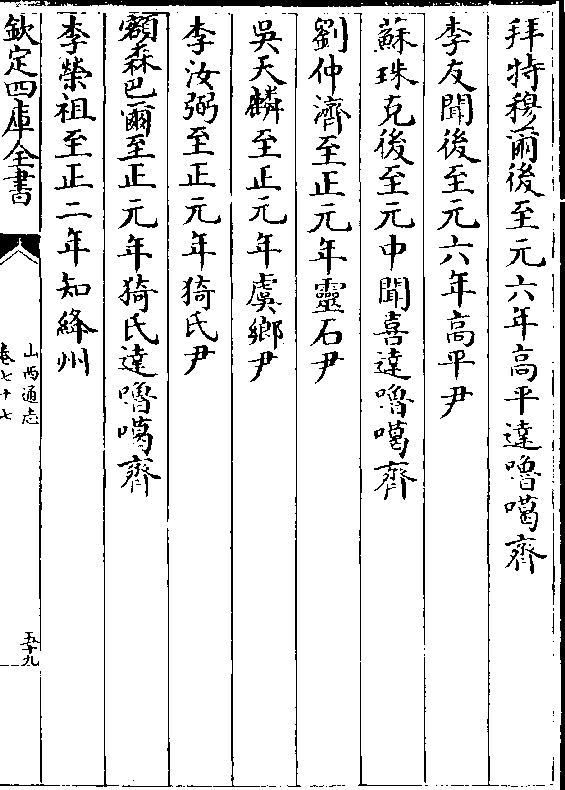 拜特穆爾後至元六年高平達嚕噶齊
李友聞後至元六年高平尹
蘇珠克後至元中聞喜達嚕噶齊
劉仲濟至正元年靈石尹
吳天麟至正元年虞鄉尹
李汝弼至正元年猗氏尹
額森巴爾至正元年猗氏達嚕噶齊
李榮祖至正二年知絳州
欽定四庫全書
山西通志
卷七十七
五十九